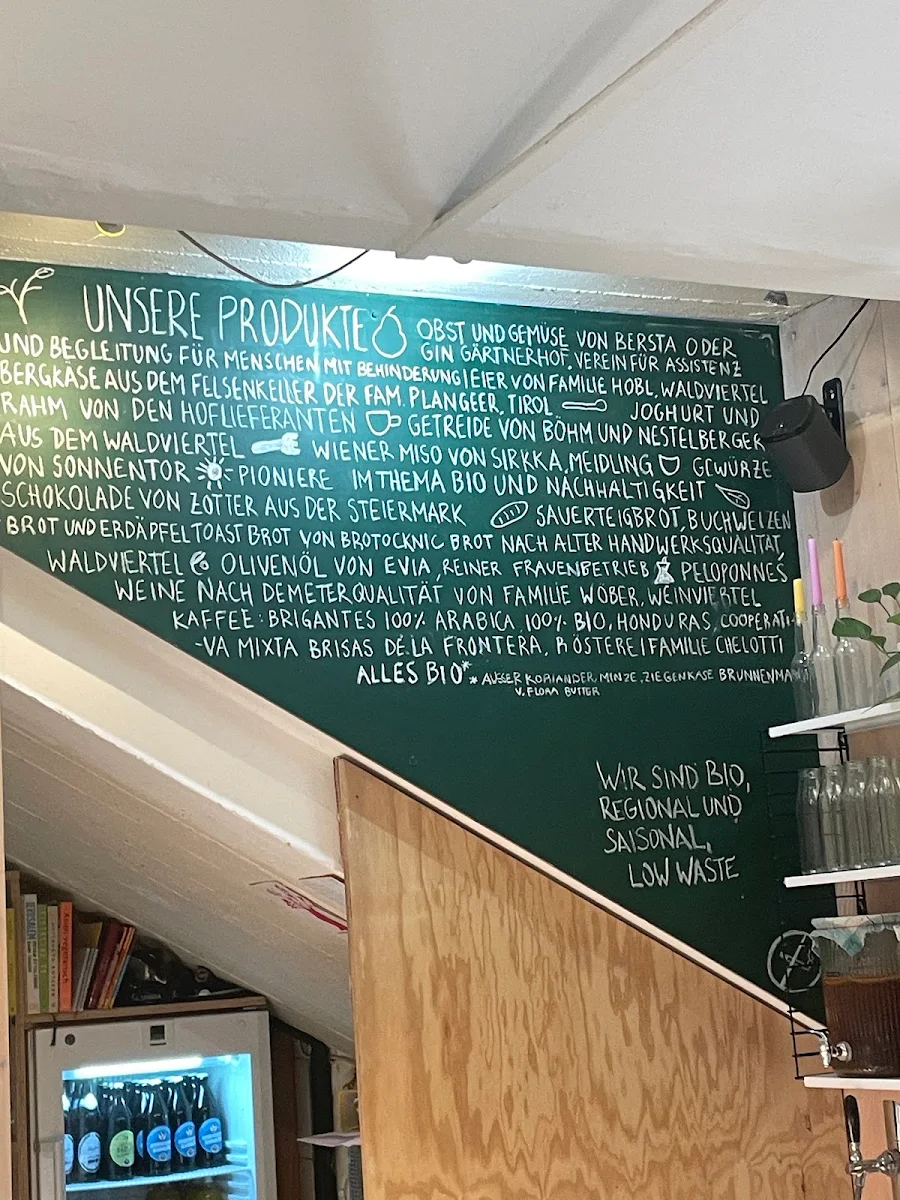 UNSERE PRODUKTE OBST UND GEMÜSE VON BERSTA ODER
GIN GÄRTNERHOF, VEREIN FÜR ASSISTENZ
UND BEGLEITUNG FÜR MENSCHEN MIT BEHINDERUNG | EIER VON FAMILIE HOBL, WALDVIERTEL
BERGKÄSE AUS DEM FELSENKELLER DER FAM. PLANGEER, TIROL JOGHURT UND
RAHM VON DEN HOFLIEFERANTEN GETREIDE VON BÖHM UND NESTELBERGER
AUS DEM WALDVIERTEL WIENER MISO VON SIRKKA, MEIDLING GEWÜRZE
VON SONNENTOR PIONIERE IM THEMA BIO UND NACHHALTIGKEIT
SCHOKOLADE VON ZOTTER AUS DER STEIERMARK SAUERTEIGBROT, BUCHWEIZEN
BROT UND ERDÄPFELTOAST BROT VON BROTOCKNIG BROT NACH ALTER HANDWERKSQUALITÄT,
WALDVIERTEL OLIVENÖL VON EVIA, REINER FRAUENBETRIEB PELOPONNES
WEINE NACH DEMETERQUALITÄT VON FAMILIE WÖBER, WEINVIERTEL
KAFFEE: BRIGANTES 100% ARABICA, 100% BIO, HONDURAS, COOPERATI-
-VA MIXTA BRISAS DE LA FRONTERA, RÖSTEREI FAMILIE CHELOTTI
ALLES BIO* * AUSSER KORIANDER, MINZE, ZIEGENKÄSE BRUNNENMA
V. FLORA BUTTER
WIR SIND BIO,
REGIONAL UND
SAISONAL,
LOW WASTE